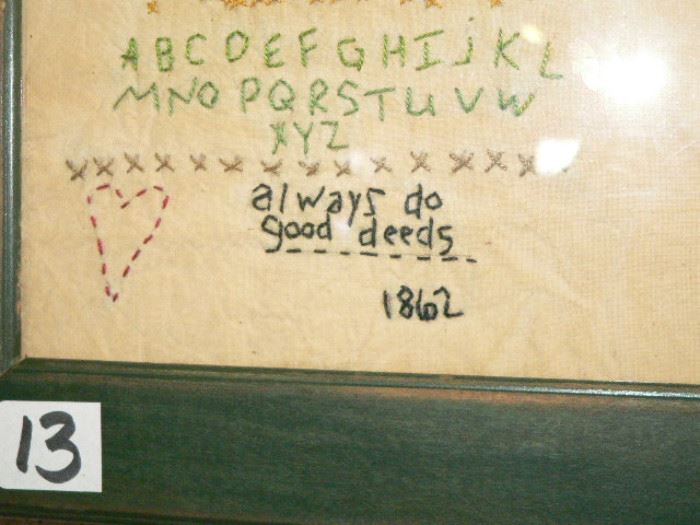 ABCDEFGHIjKL
MNOPQRSTUVW
XYZ
always do
good deeds
1862
13